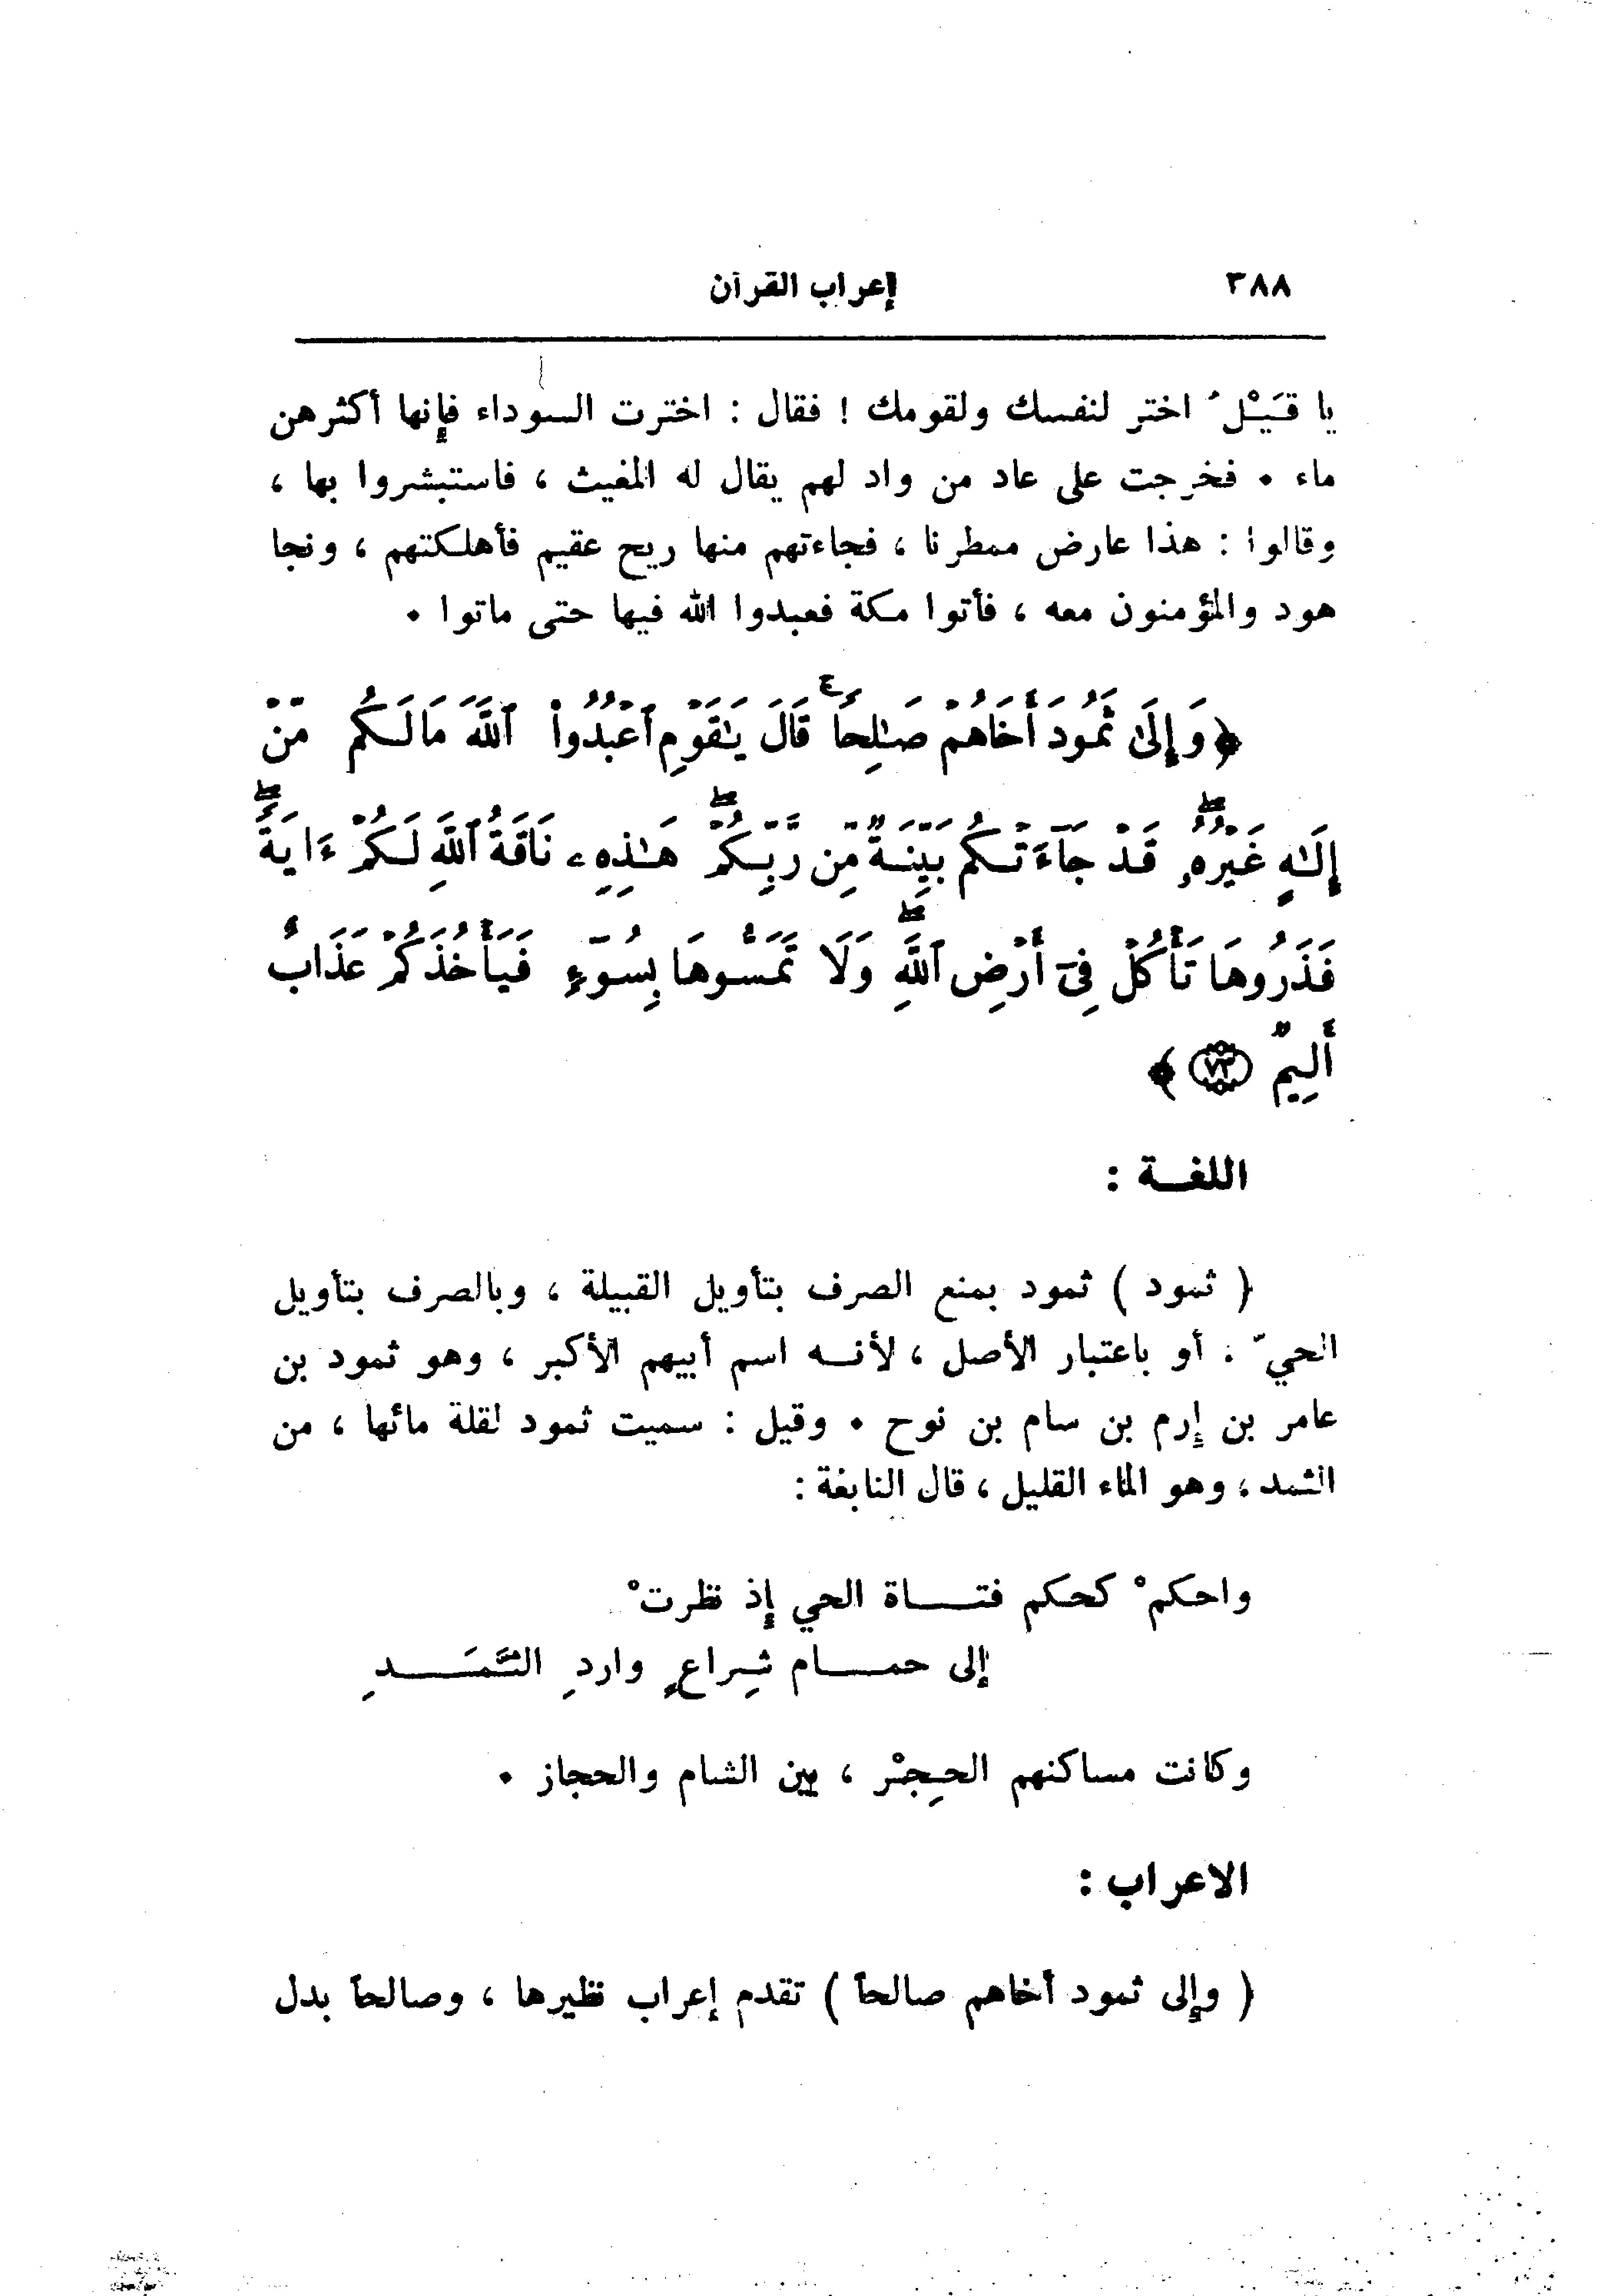 ٣٨٨ إعراب القرآن
يا قَيْلُ اختر لنفسك ولقومك ! فقال : اخترت السوداء فإنها أكثرهن
ماء ٠ فخرجت على عاد من واد لهم يقال له المغيث ، فاستبشروا بها ،
وقالوا : هذا عارض ممطرنا ، فجاءتهم منها ريح عقيم فأهلكتهم ، ونجا
هود والمؤمنون معه ، فأتوا مكة فعبدوا الله فيها حتى ماتوا ٠
﴿ وَإِلَىٰ ثَمُودَ أَخَاهُمْ صَٰلِحًا ۚ قَالَ يَٰقَوْمِ ٱعْبُدُوا۟ ٱللَّهَ مَا لَكُم مِّنْ
إِلَٰهٍ غَيْرُهُۥ ۖ قَدْ جَآءَتْكُم بَيِّنَةٌ مِّن رَّبِّكُمْ ۖ هَٰذِهِۦ نَاقَةُ ٱللَّهِ لَكُمْ ءَايَةً ۖ
فَذَرُوهَا تَأْكُلْ فِىٓ أَرْضِ ٱللَّهِ ۖ وَلَا تَمَسُّوهَا بِسُوٓءٍ فَيَأْخُذَكُمْ عَذَابٌ
أَلِيمٌ ﴿٧٣﴾ ﴾
اللغـــة :
( ثمود ) ثمود بمنع الصرف بتأويل القبيلة ، وبالصرف بتأويل
الحيّ ، أو باعتبار الأصل ، لأنـــه اسم أبيهم الأكبر ، وهو ثمود بن
عامر بن إرم بن سام بن نوح ٠ وقيل : سميت ثمود لقلة مائها ، من
الثمد ، وهو الماء القليل ، قال النابغة :
واحكمْ كحكم فتـــــاة الحي إذ نظرتْ
إلى حمـــــام شِراعٍ واردِ الثَّمَـــــدِ
وكانت مساكنهم الحِجْر ، بين الشام والحجاز ٠
الاعراب :
( وإلى ثمود أخاهم صالحاً ) تقدم إعراب نظيرها ، وصالحاً بدل